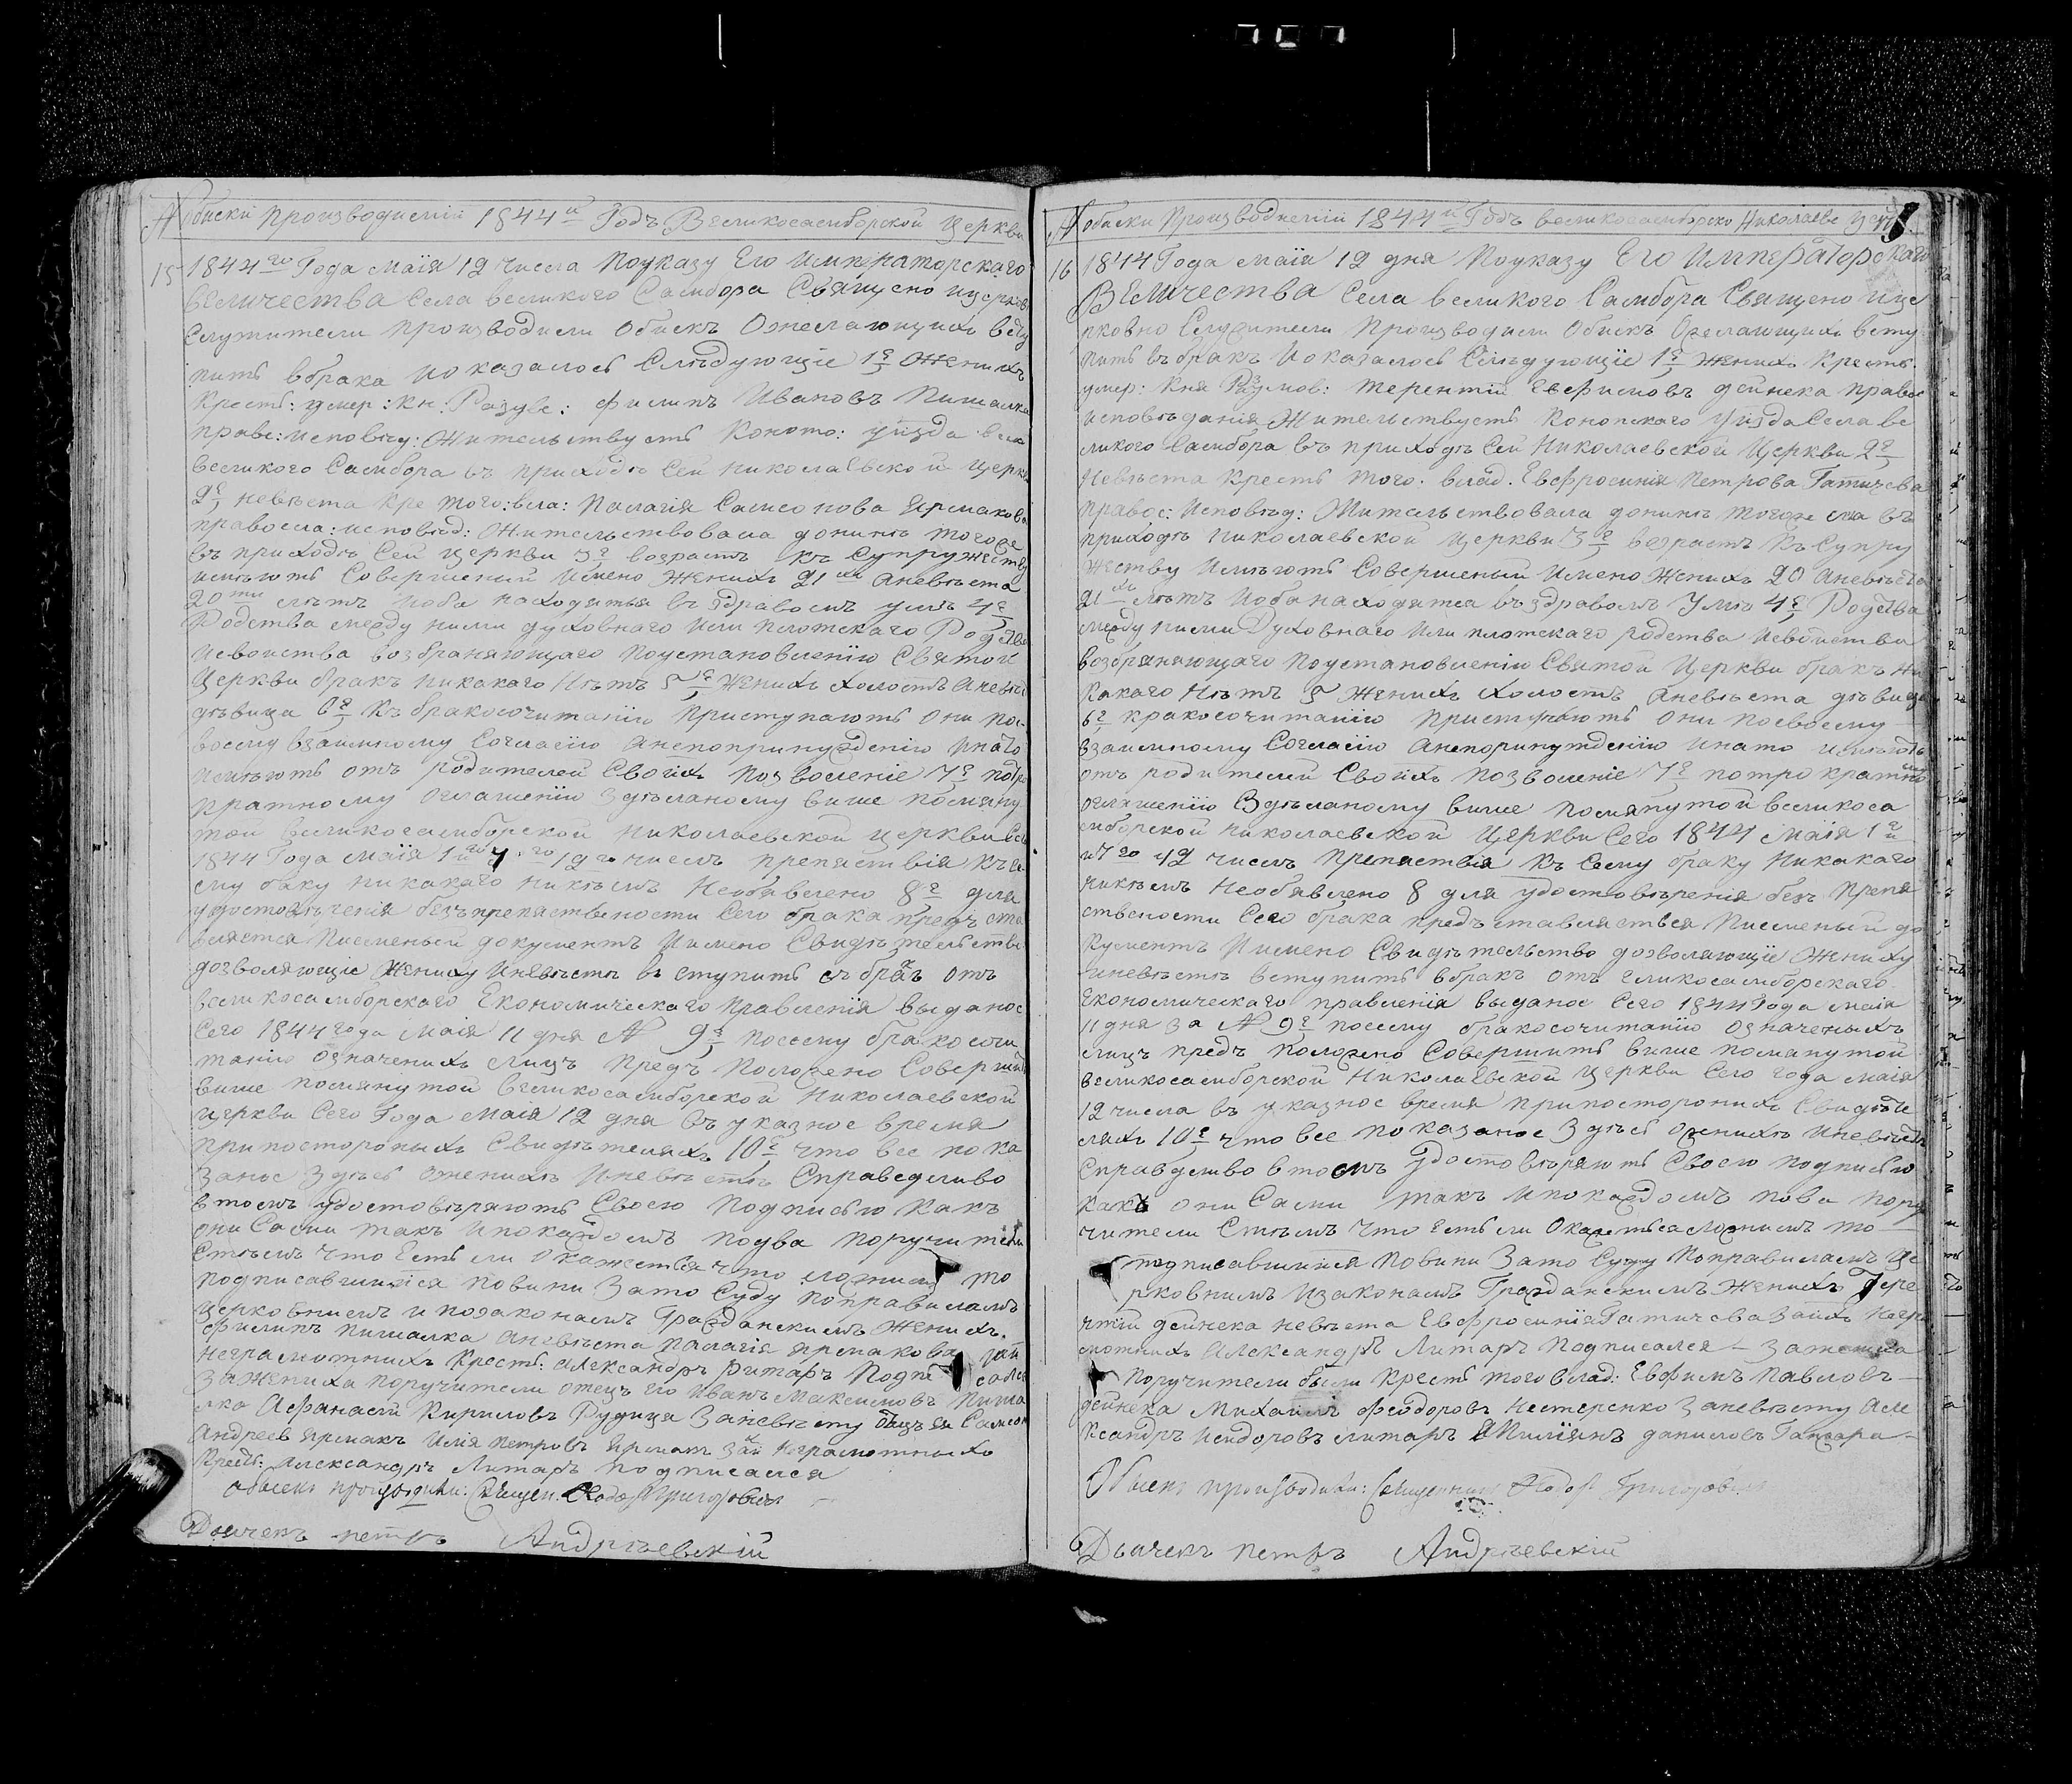 Обиски производиемій 1844й Годъ Великосамборской Церкви
15 1844го Года маія 12 числа Поуказу Его Императорскаго
Величества Села великого Самбора Священо ицерков
Служители производили Обискъ Ожелающихъ всту
пить вбрака ыоказалось Слѣдующіе 1е Женихъ
Крест: умер: Кн: Разуве: Филипъ Ивановъ Пишалка
праве: исповѣд: Жительствуетъ Коното: уѣзда села
великого Самбора въ приходѣ Сей николаевской церкв
2е невѣста кре того: вла: Палагія Самсонова Ярмакова
правосла: исповѣд: Жительствовала донинѣ тогоже
въ приходѣ Сей церкви 3е возрастъ къ Супружеству
имѣютъ Совершеный Имено Женихъ 21 аневѣста
20ти лѣтъ иоба находятъя въ здравомъ умѣ 4е
Родства между ними духовнаго или плотскаго Родства
исвойства возбраняющаго поустановленію Святой
Церкви бракъ никакаго Нѣтъ 5е Женихъ холостъ аневѣс
дѣвица 6е Къ бракосочитанію приступаютъ они пос-
воему взаимному Согласію анепопринужденію инато
имѣютъ отъ родителей Своіхъ позволеніе 7е потро
кратному оглашенію здѣланому више помяну
той великосамборской николаевской церкви Сего
1844 Года маія 1го 7го 12го числъ препяствія къ се
ему баку никакаго никѣмъ Необявлено 8е для
удостовѣренія безъпрепяствености Сего брака предъста
вляется Писменый документъ Имено Свидѣтельство
дозволяющіе Жениху иневѣстѣ въступить въ бракъ отъ
великосамборскаго Економическаго правленія выданое
Сего 1844 года маія 11 дня N 9е посему бракосочи
танію означенихъ лицъ предъ положено Совершит
више помянутой великосамборской Николаевской
церкви Сего Года мая 12 дня въ указное время
припосторонихъ Свидѣтеляхъ 10е что все пока
заное Здѣсь оженихѣ иневѣстѣ Справедливо
втомъ удостовѣряютъ Своею Подписью Какъ
они Сами такъ ипокаждомъ подва поручители
Стѣмъ что Естьли Окажется что ложнимъ то
Подписавшиіся повини Зато Суду поправиламъ
церковнимъ и позаконамъ Гражданскимъ Женихъ.
Филипъ Пишалка аневѣста Палагія Ярмакова заи
неграмотнихъ Крест: Александръ Литаръ Подпи сался
За жениха поручители отецъ его Иванъ Максимовъ Пиша
лка Афанасій Кириловъ Рудица Заневѣсту отецъ ея Самсон
Андреев Ярмакъ Илія Петровъ Ярмакъ заи неграмотныхъ
Крест: Александръ Литаръ подписался
обыскъ производили: Священ. Ѳеодоръ Григоровичъ
Дьячекъ петръ Андріевскій
Обиски Производиемій 1844й Годъ великосамборско Николаевс Церкв
16 1844 Года маія 12 дня Поуказу Его Императорскаго
Величества Села великого Самбора Священо ице
рковно Служители Производили Обискъ Ожелающихъ всту
пить въбракъ иоказалось Слѣдующіе 1е Женихъ Крестъ.
умер: Кня Разумов: Терентій Евфимовъ дейнека правос
исповѣданія Жительствуетъ Конопскаго уѣзда Села ве
ликого Самбора въ приходѣ Сей Николаевской Церкви 2е
Невѣста Крестъ того: влад. Евфросинія Петрова Гатичева
правос: Исповѣд: Жительствовала донинѣ тогоже ела въ
приходѣ Николаевской Церкви 3е возрастъ къ Супру
жеству Имѣютъ Совершеный Имено Женихъ 20 аневѣста
21 лѣтъ иоба находятся въздравомъ Умѣ 4е Родства
между ними Духовнаго или плотскаго родства исвойства
возбраняющаго поустановленію Святой Церкви бракъ ни
какаго нѣтъ 5 Женихъ холостъ аневѣста дѣвица
6е кракосочитанію приступаютъ они посвоему
взаимному Согласію анепоринужденію инато имѣютъ
отъ родителей Своіхъ позволеніе 7е потрократно
оглашенію Здѣланому више помянутой великоса
мборской николаевской Церкви Сего 1844 Маія 1го
и7го 12 числъ препяствія къ Сему браку Никакаго
никѣмъ Необявлено 8 для удостовѣренія безъ препя
ствености Сего брака предъставляется Писменый до
кументъ Имено Свидѣтельство дозволяющіе Жениху
иневѣстѣ вступить вбракъ отъ еликосамборскаго
Економическаго правленія выданое Сего 1844 Года маія
11 дня за N 9е посему бракосочитанію означеныхъ
лицъ предъ положено Совершить више помянутой
великосамборской Николаевской Церкви Сего года маія
12 числа въ указное время припосторонихъ Свидѣте
ляхъ 10е что все показаное Здѣсь оженихѣ иневѣстѣ
Справдливо втомъ Удостовѣряютъ Своею подписью
какъ они Сами такъ ипокаждомъ пова пору
чители Стѣмъ что Естьли Окажется ложнимъ то
подписавшиіся повини Зато Суду Поправиламъ Це
рковнимъ изаконамъ Гражданскимъ Женихъ Тере
нтій дейнека невѣста Евфросинія Гатичева Заихъ негра
мотнихъ Александръ Литаръ Подписался – За жениха
Поручители были Крестъ тоговлад: Евфимъ Павловъ
дейнека Михаилъ Феодоровъ Нестеренко Заневѣсту Але
ксандръ Исидоровъ литаръ Емиліянъ даниловъ
Обыскъ производили: Священникъ Ѳеодоръ Григоровичъ
Дьячекъ петръ Андріевскій